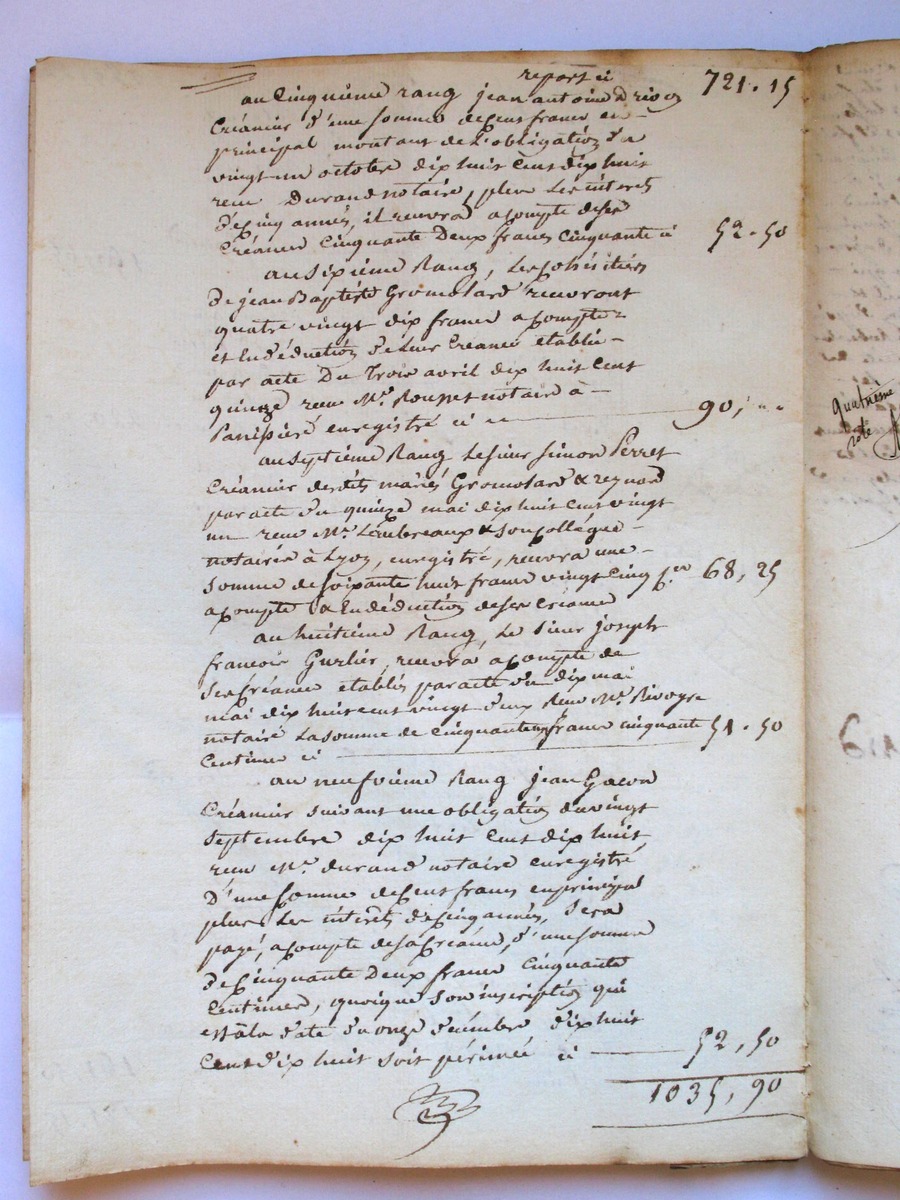 report ci 721.15
au Cinquième rang jean antoine
Créancier d'une somme de Cent francs en
principal montant de l'obligation du
vingt un octobre dix huit Cent dix huit
recu Durand notaire, plus les interets
de Cinq années, il recevra acompte de ses
Créances Cinquante Deux francs Cinquante ci 52-50
au sixième Rang, les cohéritiers
de jean Baptiste Gromolard recevront
quatre vingt dix francs acompte
et En déduction de Leur Creance etablie
par acte Du Trois avril dix huit Cent
quinze recu Me Rousset notaire à
enregistré ci 90,""
au septième Rang Le sieur simon Perret
Créancier desdits mariés Gromolard & reynard
par acte du quinze mai dix huit Cent vingt
un recu Me & son Collégue
notaires à Lyon, enregistré, recevra une
somme de soixante huit francs vingt Cinq 68,25
acompte & En déduction de ses Créances
au huitième Rang, Le sieur joseph
francois Gurlier, recevra acompte de
Ses Créances etablies par acte du dix mai
mai dix huit cent vingt deux Recu Me Rivoyre
notaire La somme de Cinquante un francs cinquante 51.50
Centimes ci
au neufvième Rang jean Gacon
Créancier suivant une obligation du vingt
Septembre dix huit Cent dix huit
recu Me durand notaire enregistré
D'une somme de Cent francs en principal
plus Les intérêts de Cinq années, Sera
payé, acompte de sa Créance, d'une somme
de Cinquante Deux francs Cinquante
Centimes, quoique Son inscription qui
est à la date du onze décembre dix huit
Cent dix huit soit périmée ci 52,50
1035,90
quatrième
rôle